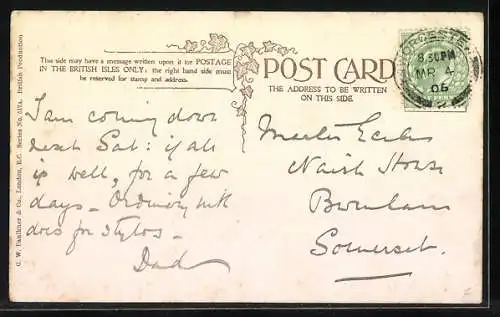 This side may have a message written upon it for POSTAGE
IN THE BRITISH ISLES ONLY; the right hand side must
be reserved for stamp and address.
POST CARD
THE ADDRESS TO BE WRITTEN
ON THIS SIDE.
WORCESTER
8.30PM
MR 4
06
C. W. Faulkner & Co., London, E.C. Series No. British Production
I am coming down
next Sat: if all
is well, for a few
days - Ordinary ink
does for Stylos -
Dad
Master
House
Burnham
Somerset.